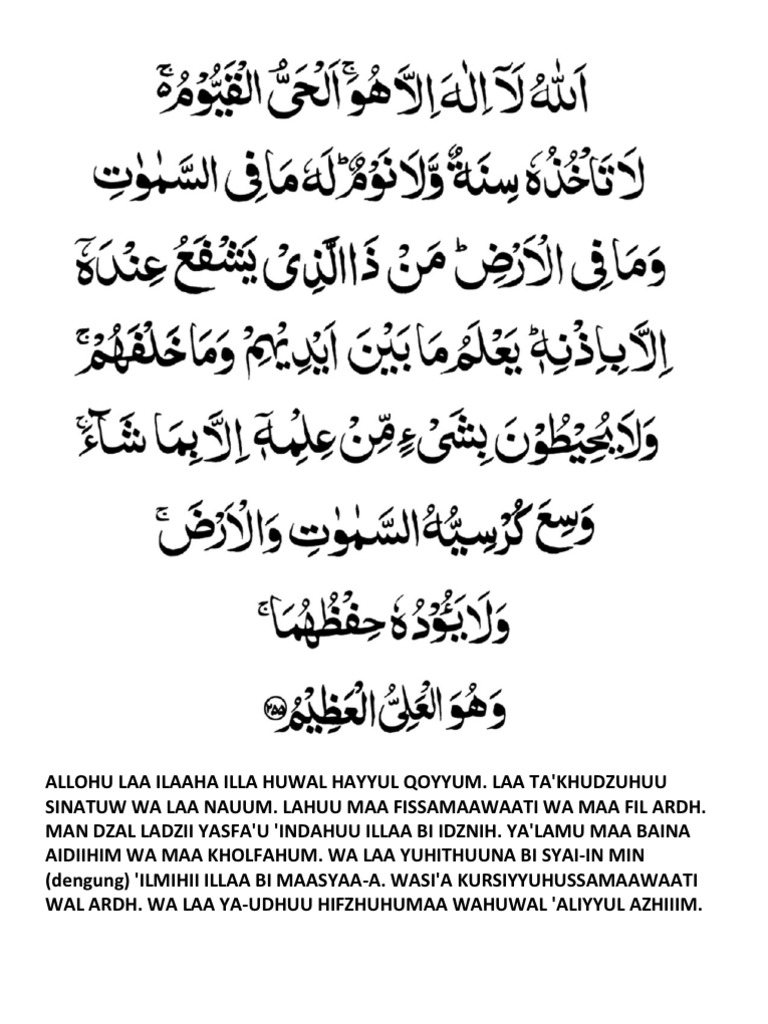 اَللّٰهُ لَآ اِلٰهَ اِلَّا هُوَۚ اَلْحَيُّ الْقَيُّوْمُ ەۚ
لَا تَاْخُذُهٗ سِنَةٌ وَّلَا نَوْمٌۗ لَهٗ مَا فِى السَّمٰوٰتِ
وَمَا فِى الْاَرْضِۗ مَنْ ذَا الَّذِيْ يَشْفَعُ عِنْدَهٗٓ
اِلَّا بِاِذْنِهٖۗ يَعْلَمُ مَا بَيْنَ اَيْدِيْهِمْ وَمَا خَلْفَهُمْۚ
وَلَا يُحِيْطُوْنَ بِشَيْءٍ مِّنْ عِلْمِهٖٓ اِلَّا بِمَا شَاۤءَۚ
وَسِعَ كُرْسِيُّهُ السَّمٰوٰتِ وَالْاَرْضَۚ
وَلَا يَـُٔوْدُهٗ حِفْظُهُمَاۚ
وَهُوَ الْعَلِيُّ الْعَظِيْمُ ۝٢٥٥
ALLOHU LAA ILAAHA ILLA HUWAL HAYYUL QOYYUM. LAA TA'KHUDZUHUU
SINATUW WA LAA NAUUM. LAHUU MAA FISSAMAAWAATI WA MAA FIL ARDH.
MAN DZAL LADZII YASFA'U 'INDAHUU ILLAA BI IDZNIH. YA'LAMU MAA BAINA
AIDIIHIM WA MAA KHOLFAHUM. WA LAA YUHITHUUNA BI SYAI-IN MIN
(dengung) 'ILMIHII ILLAA BI MAASYAA-A. WASI'A KURSIYYUHUSSAMAAWAATI
WAL ARDH. WA LAA YA-UDHUU HIFZHUHUMAA WAHUWAL 'ALIYYUL AZHIIIM.